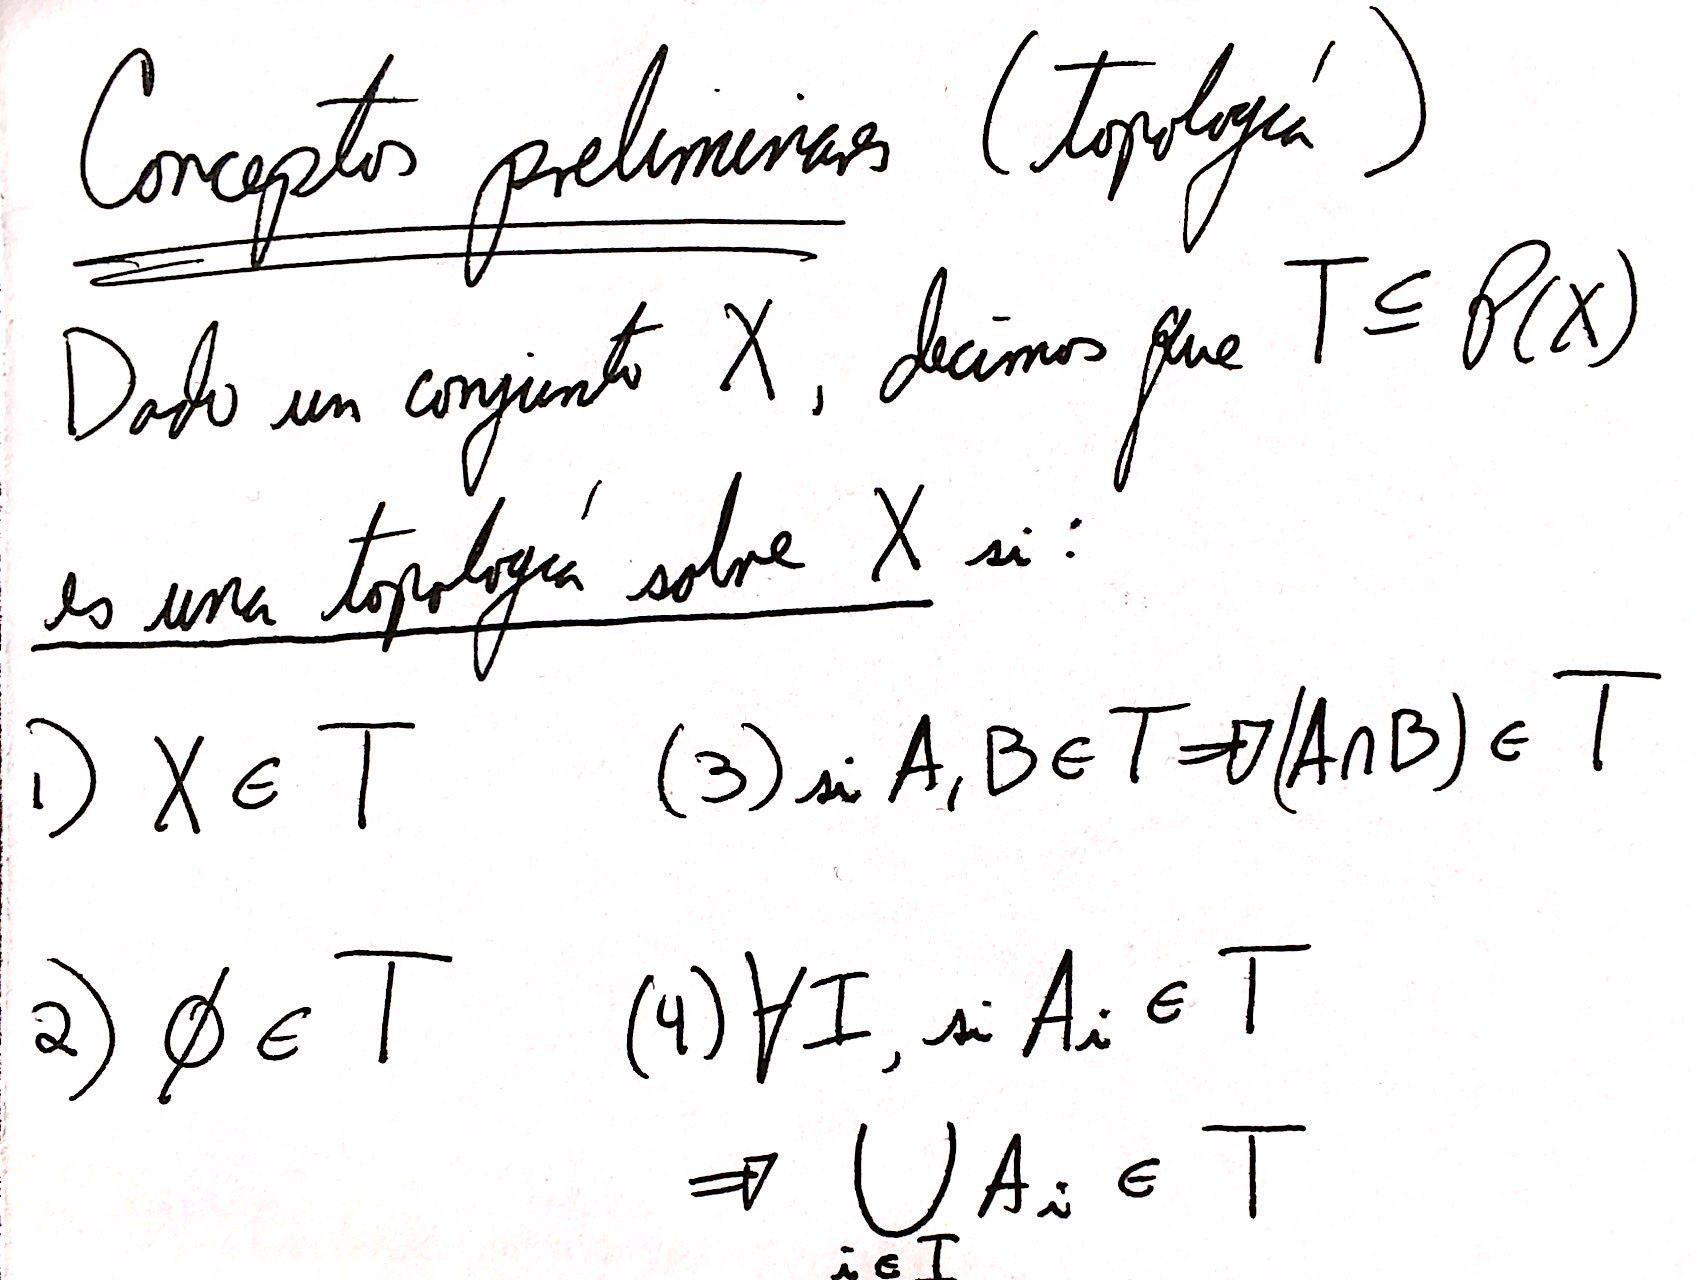 Conceptos preliminares (topología)
Dado un conjunto X, decimos que T ⊆ P(X)
es una topología sobre X si:
1) X ∈ T (3) si A, B ∈ T ⇒ (A∩B) ∈ T
2) ∅ ∈ T (4) ∀I, si Ai ∈ T
⇒ ⋃ Ai ∈ T
i ∈ I